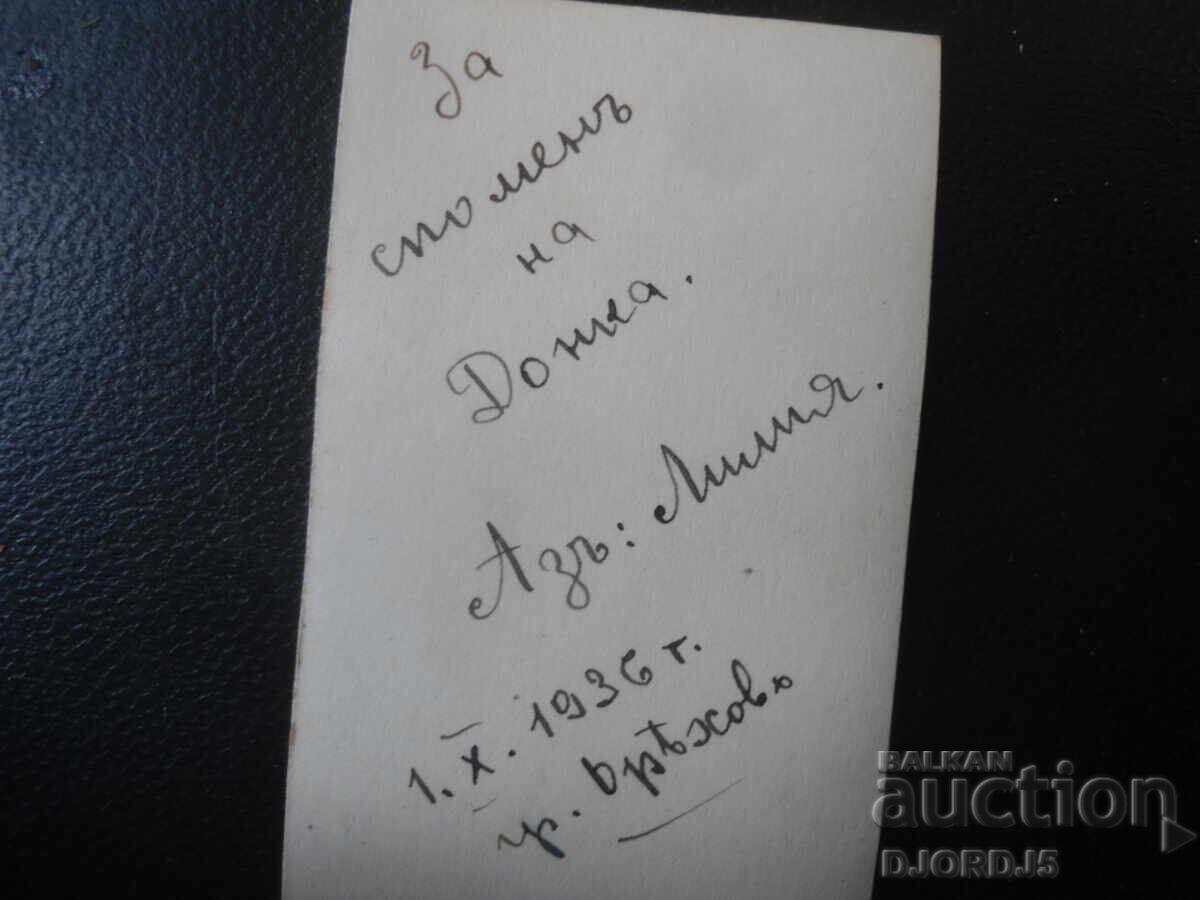 За
споменъ
на
Донка.
Азъ: Лилия.
1. X. 1936 г.
гр. Орѣховъ
BALKAN
auction
DJORDJ5